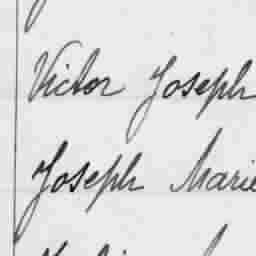 Victor Joseph
Joseph Marie